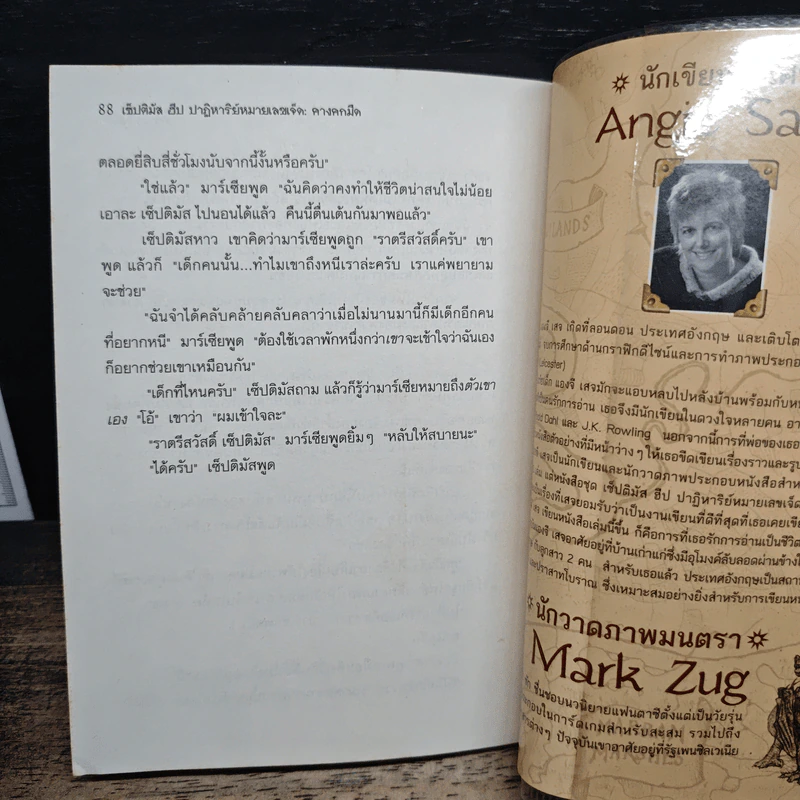 88 เซ็ปติมัส ฮีป ปาฏิหาริย์หมายเลขเจ็ด: คางคกมืด
ตลอดยี่สิบสี่ชั่วโมงนับจากนี้งั้นหรือครับ"
"ใช่แล้ว" มาร์เซียพูด "ฉันคิดว่าคงทำให้ชีวิตน่าสนใจไม่น้อย
เอาละ เซ็ปติมัส ไปนอนได้แล้ว คืนนี้ตื่นเต้นกันมาพอแล้ว"
เซ็ปติมัสหาว เขาคิดว่ามาร์เซียพูดถูก "ราตรีสวัสดิ์ครับ" เขา
พูด แล้วก็ "เด็กคนนั้น...ทำไมเขาถึงหนีเราล่ะครับ เราแค่พยายาม
จะช่วย"
"ฉันจำได้คลับคล้ายคลับคลาว่าเมื่อไม่นานมานี้ก็มีเด็กอีกคน
ที่อยากหนี" มาร์เซียพูด "ต้องใช้เวลาพักหนึ่งกว่าเขาจะเข้าใจว่าฉันเอง
ก็อยากช่วยเขาเหมือนกัน"
"เด็กที่ไหนครับ" เซ็ปติมัสถาม แล้วก็รู้ว่ามาร์เซียหมายถึงตัวเขา
เอง "โอ้" เขาว่า "ผมเข้าใจละ"
"ราตรีสวัสดิ์ เซ็ปติมัส" มาร์เซียพูดยิ้มๆ "หลับให้สบายนะ"
"ได้ครับ" เซ็ปติมัสพูด
นักเขียน
Angie Sa
LANDS
เสจ เกิดที่ลอนดอน ประเทศอังกฤษ และเติบโต
การศึกษาด้านกราฟิกดีไซน์และการทำภาพประกอ
eicester)
เด็ก แองจี เสจมักจะแอบหลบไปหลังบ้านพร้อมกับห
คนรักการอ่าน เธอจึงมีนักเขียนในดวงใจหลายคน อา
Dahl และ J.K. Rowling นอกจากนี้การที่พ่อของเธอ
สือตัวอย่างที่มีหน้าว่างๆ ให้เธอขีดเขียนเรื่องราวและรูป
เสจเป็นนักเขียนและนักวาดภาพประกอบหนังสือสำห
แต่หนังสือชุด เซ็ปติมัส ฮีป ปาฏิหาริย์หมายเลขเจ็ด
เป็นเรื่องที่เสจยอมรับว่าเป็นงานเขียนที่ดีที่สุดที่เธอเคยเขีย
เสจ เขียนหนังสือเล่มนี้ขึ้น ก็คือการที่เธอรักการอ่านเป็นชีวิต
แองจี เสจอาศัยอยู่ที่บ้านเก่าแก่ซึ่งมีอุโมงค์ลับลอดผ่านข้างใ
กับลูกสาว 2 คน สำหรับเธอแล้ว ประเทศอังกฤษเป็นสถาน
ปราสาทโบราณ ซึ่งเหมาะสมอย่างยิ่งสำหรับการเขียนห
นักวาดภาพมนตรา
Mark Zug
ชื่นชอบนวนิยายแฟนตาซีตั้งแต่เป็นวัยรุ่น
กอบในการ์ดเกมสำหรับสะสม รวมไปถึง
ต่างๆ ปัจจุบันเขาอาศัยอยู่ที่รัฐเพนซิลเวเนีย